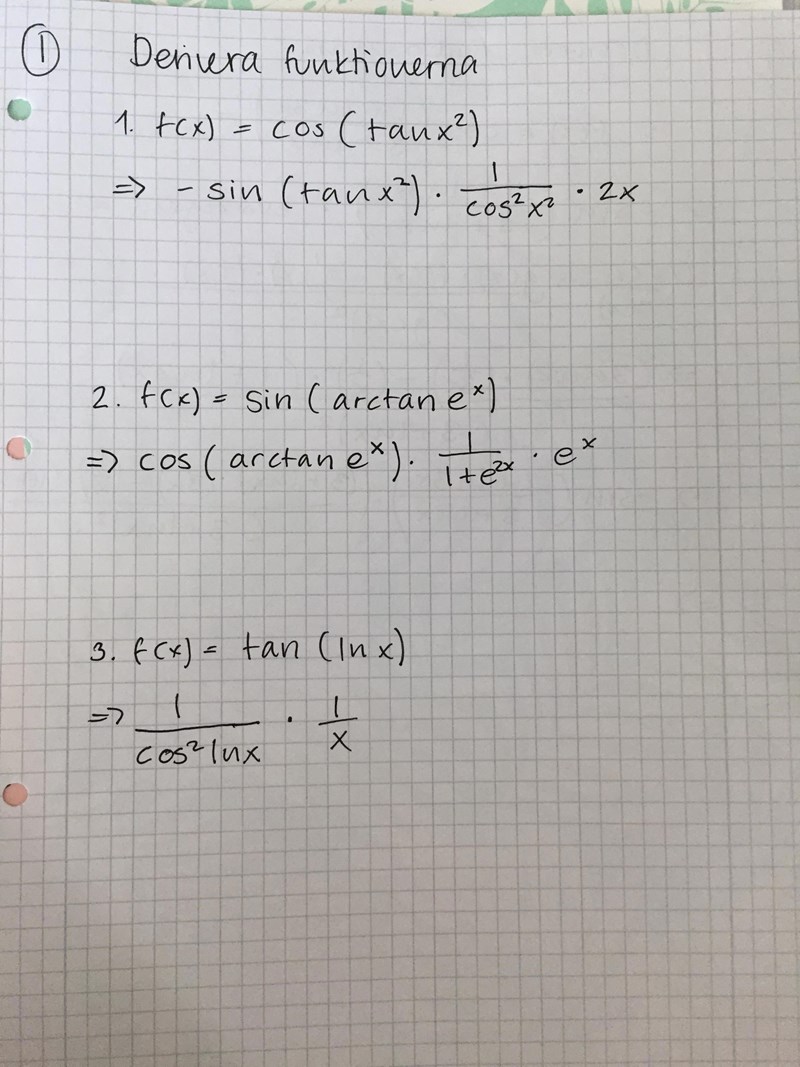 ① Derivera funktionerna
1. f(x) = cos (tan x²)
=> - sin (tan x²) · 1/cos² x² · 2x
2. f(x) = sin (arctan eˣ)
=> cos (arctan eˣ) · 1/1+e²ˣ · eˣ
3. f(x) = tan (ln x)
=> 1/cos² ln x · 1/x